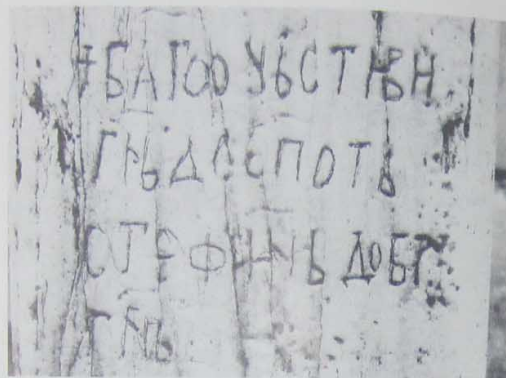 +БАГОО ЧЬСТНВН
ГНЬ ДЕСПОТЬ
СТЕФАНЬ ДОБР
ГНЬ